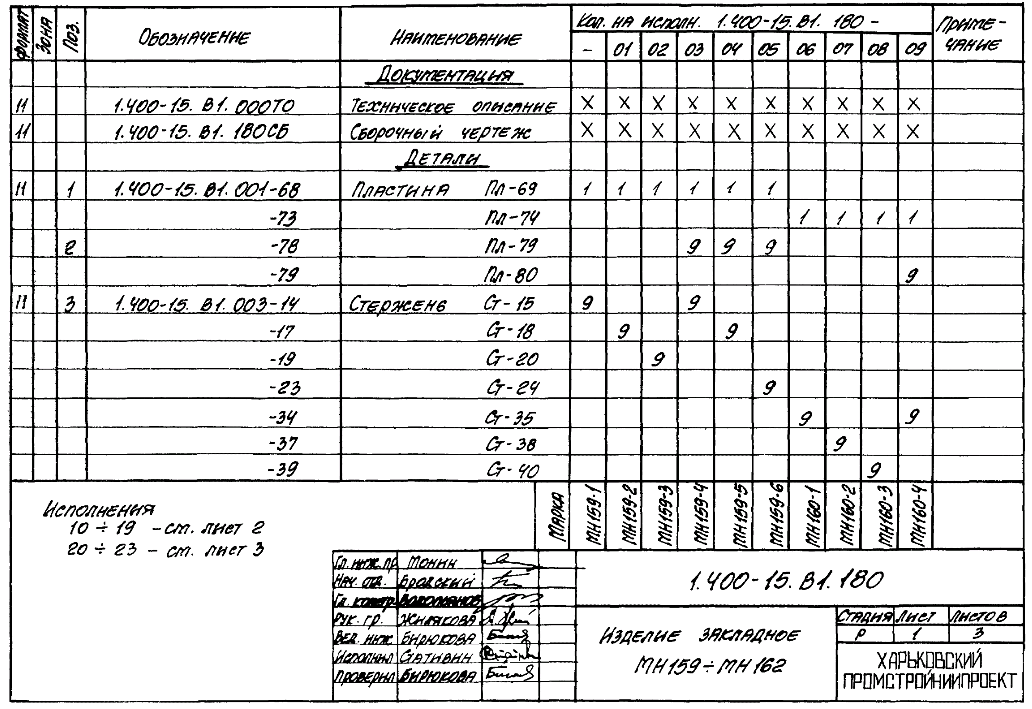 Формат Зона Поз. Обозначение Наименование Кол. на исполн. 1.400-15.В1.180 - Примечание
- 01 02 03 04 05 06 07 08 09
Документация
11 1.400-15.В1.000ТО Техническое описание X X X X X X X X X X
11 1.400-15.В1.180СБ Сборочный чертеж X X X X X X X X X X
Детали
11 1 1.400-15.В1.001-68 Пластина Пл-69 1 1 1 1 1 1
-73 Пл-74 1 1 1 1
2 -78 Пл-79 9 9 9
-79 Пл-80 9
11 3 1.400-15.В1.003-14 Стержень Ст-15 9 9
-17 Ст-18 9 9
-19 Ст-20 9
-23 Ст-24 9
-34 Ст-35 9 9
-37 Ст-38 9
-39 Ст-40 9
Марка МН159-1 МН159-2 МН159-3 МН159-4 МН159-5 МН159-6 МН160-1 МН160-2 МН160-3 МН160-4
Исполнения
10÷19 - см. лист 2
20÷23 - см. лист 3
Гл. инж. пр. Монин
Нач. отд. Бродский
Гл. констр. Водопьянов
Рук. гр. Жилякова
Вед. инж. Бирюкова
Исполнил Стативин
Проверил Бирюкова
1.400-15.В1.180
Изделие закладное
МН159÷МН162
Стадия Лист Листов
Р 1 3
ХАРЬКОВСКИЙ
ПРОМСТРОЙНИИПРОЕКТ